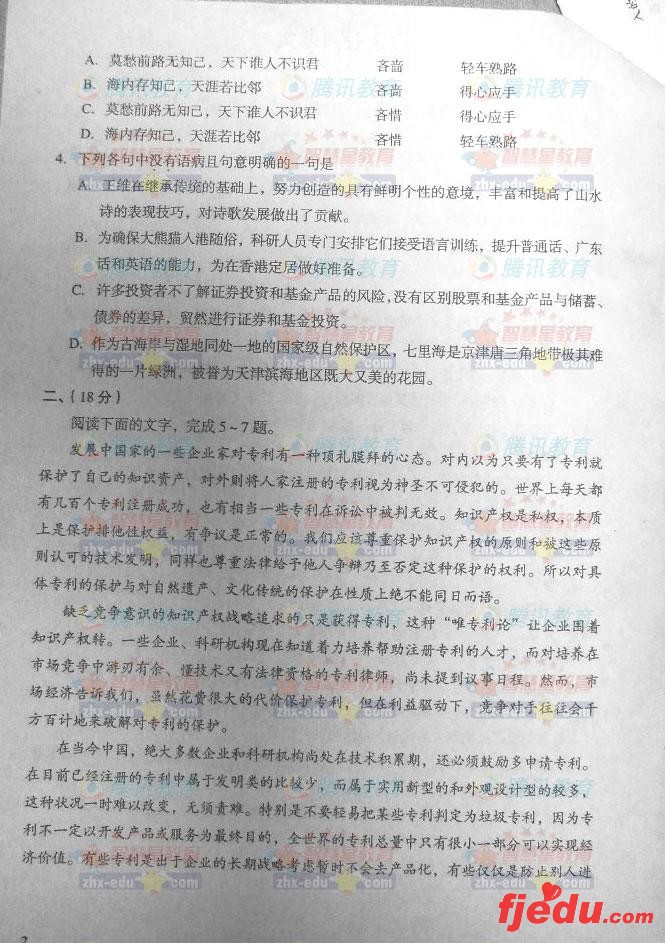 A. 莫愁前路无知己，天下谁人不识君 吝啬 轻车熟路
B. 海内存知己，天涯若比邻 吝啬 得心应手
C. 莫愁前路无知己，天下谁人不识君 吝惜 得心应手
D. 海内存知己，天涯若比邻 吝惜 轻车熟路
4. 下列各句中没有语病且句意明确的一句是
A. 王维在继承传统的基础上，努力创造的具有鲜明个性的意境，丰富和提高了山水
诗的表现技巧，对诗歌发展做出了贡献。
B. 为确保大熊猫人港随俗，科研人员专门安排它们接受语言训练，提升普通话、广东
话和英语的能力，为在香港定居做好准备。
C. 许多投资者不了解证券投资和基金产品的风险，没有区别股票和基金产品与储蓄、
债券的差异，贸然进行证券和基金投资。
D. 作为古海岸与湿地同处一地的国家级自然保护区，七里海是京津唐三角地带极其难
得的一片绿洲，被誉为天津滨海地区既大又美的花园。
二、（18分）
阅读下面的文字，完成5～7题。
发展中国家的一些企业家对专利有一种顶礼膜拜的心态。对内以为只要有了专利就
保护了自己的知识资产，对外则将人家注册的专利视为神圣不可侵犯的。世界上每天都
有几百个专利注册成功，也有相当一些专利在诉讼中被判无效。知识产权是私权，本质
上是保护排他性权益，有争议是正常的。我们应该尊重保护知识产权的原则和被这些原
则认可的技术发明，同样也尊重法律给予他人争辩乃至否定这种保护的权利。所以对具
体专利的保护与对自然遗产、文化传统的保护在性质上绝不能同日而语。
缺乏竞争意识的知识产权战略追求的只是获得专利，这种“唯专利论”让企业围着
知识产权转。一些企业、科研机构现在知道着力培养帮助注册专利的人才，而对培养在
市场竞争中游刃有余、懂技术又有法律资格的专利律师，尚未提到议事日程。然而，市
场经济告诉我们，虽然花费很大的代价保护专利，但在利益驱动下，竞争对手往往会千
方百计地来破解对专利的保护。
在当今中国，绝大多数企业和科研机构尚处在技术积累期，还必须鼓励多申请专利。
在目前已经注册的专利中属于发明类的比较少，而属于实用新型的和外观设计型的较多，
这种状况一时难以改变，无须责难。特别是不要轻易把某些专利判定为垃圾专利，因为专
利不一定以开发产品或服务为最终目的，全世界的专利总量中只有很小一部分可以实现经
济价值。有些专利是出于企业的长期战略考虑暂时不会去产品化，有些仅仅是防止别人进
腾讯教育
智慧星教育
zhx-edu.com
fjedu.com